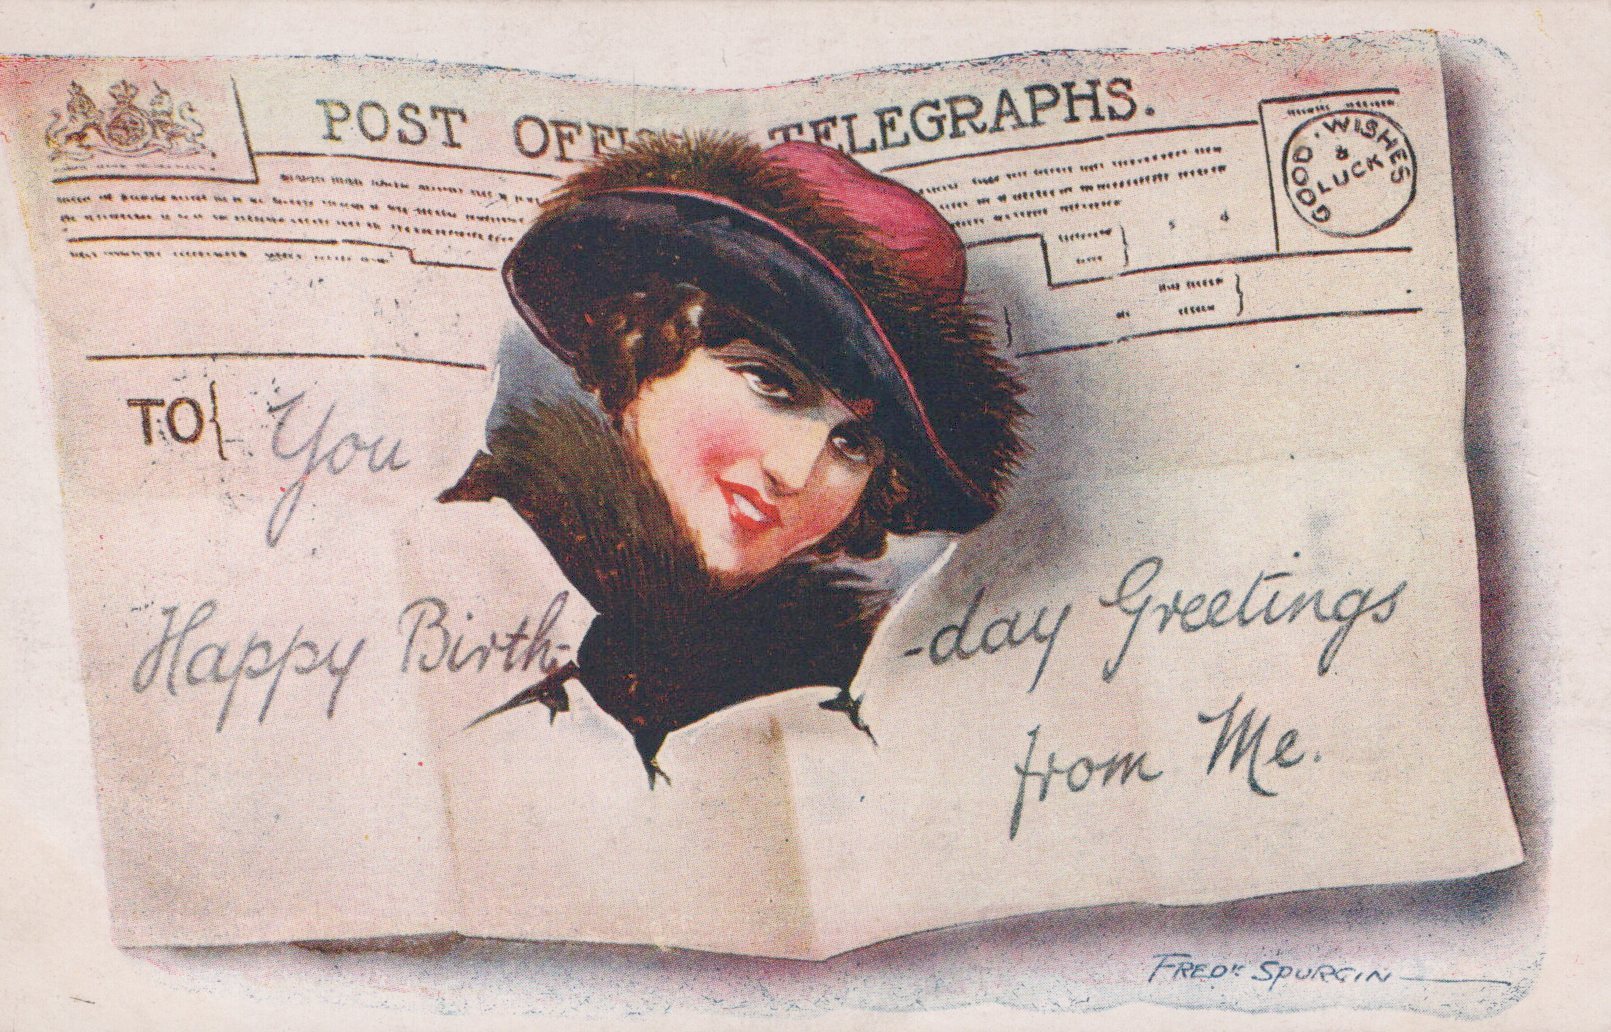 POST OFFI TELEGRAPHS.
GOOD WISHES
&
LUCK
TO{ You
Happy Birth- -day Greetings
from Me.
FREDK SPURGIN